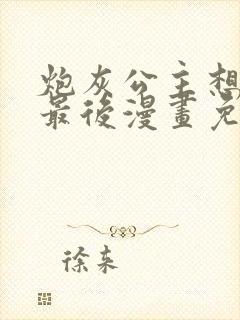 炮灰公主想
最後漫畫免
徐来